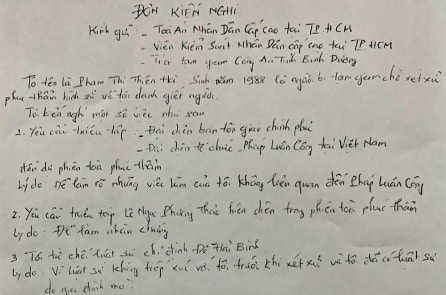 ĐƠN KIẾN NGHỊ
Kính gửi : - Toà Án Nhân Dân Cấp cao tại TP HCM
- Viện Kiểm Soát Nhân Dân cấp cao tại TP HCM
- Trại tạm giam Công An Tỉnh Bình Dương
Tôi tên là Phạm Thị Thiên Hà Sinh năm 1988 là người bị tạm giam chờ xét xử
phúc thẩm hình sự về tội danh giết người.
Tôi kiến nghị một số việc như sau
1. Yêu cầu triệu tập : - Đại diện ban tôn giáo chính phủ
- Đại diện tổ chức Pháp Luân Công tại Việt Nam
đến dự phiên toà phúc thẩm
Lý do : Để làm rõ những việc làm của tôi không liên quan đến Pháp Luân Công
2. Yêu cầu triệu tập Lê Ngọc Phương Thảo hiện diện trong phiên toà phúc thẩm
Lý do : Để làm nhân chứng
3 Tôi từ chối luật sư chỉ định Đỗ Hải Bình
Lý do : Vì luật sư không tiếp xúc với tôi trước khi xét xử và tôi đã có luật sư
do gia đình mời